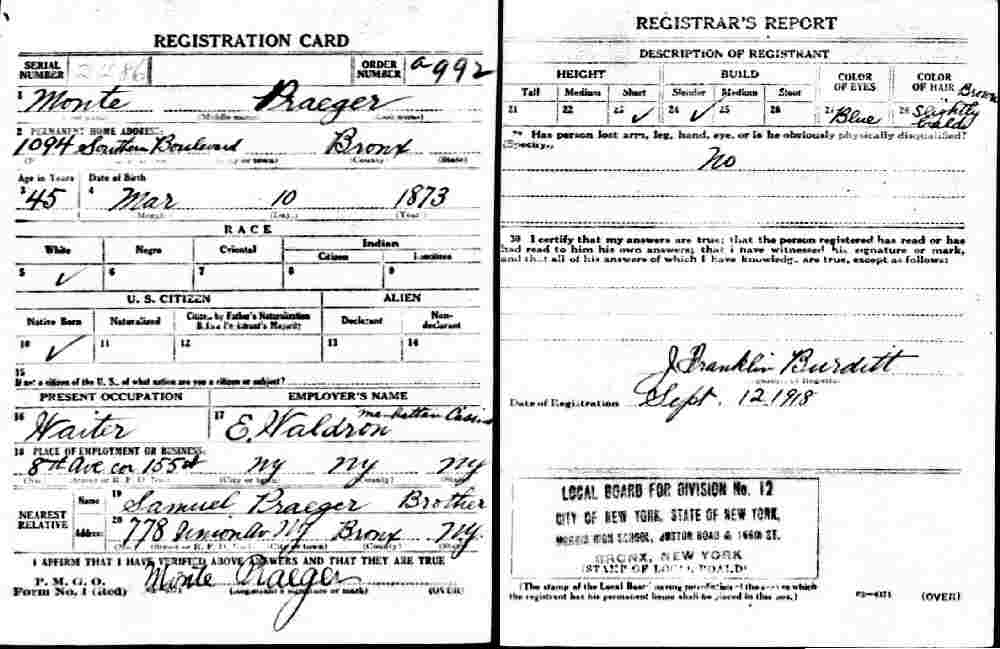 REGISTRATION CARD
SERIAL NUMBER 2286 ORDER NUMBER a992
1 Monte Praeger
(Middle name)
2 PERMANENT HOME ADDRESS:
1094 Southern Boulevard Bronx
(County) (State)
Age in Years Date of Birth
3 45 4 Mar 10 1873
(Month) (Day) (Year)
RACE
White Negro Oriental Indian
Citizen
5 ✓ 6 7 8 9
U. S. CITIZEN ALIEN
Native Born Naturalized Citizen by Father's Naturalization Before Registrant's Majority Declarant Non-declarant
10 ✓ 11 12 13 14
15
If not a citizen of the U. S., of what nation are you a citizen or subject?
PRESENT OCCUPATION EMPLOYER'S NAME
16 Waiter 17 E. Waldron Manhattan Casino
18 PLACE OF EMPLOYMENT OR BUSINESS:
8th Ave cor 155 st NY NY NY
NEAREST RELATIVE
Name 19 Samuel Praeger Brother
Address 20 778 Union Av NY Bronx NY
I AFFIRM THAT I HAVE VERIFIED ABOVE ANSWERS AND THAT THEY ARE TRUE
P. M. G. O.
Form No. 1 (Red) Monte Praeger
(Registrant's signature or mark) (OVER)
REGISTRAR'S REPORT
DESCRIPTION OF REGISTRANT
HEIGHT BUILD COLOR OF EYES COLOR OF HAIR Brown
Tall Medium Short Slender Medium Stout
21 22 23 ✓ 24 ✓ 25 26 27 Blue 28 Slightly bald
29 Has person lost arm, leg, hand, eye, or is he obviously physically disqualified?
(Specify.)
No
30 I certify that my answers are true; that the person registered has read or has
had read to him his own answers; that I have witnessed his signature or mark,
and that all of his answers of which I have knowledge are true, except as follows:
J Franklin Burditt
Date of Registration Sept. 12 1918
LOCAL BOARD FOR DIVISION No. 12
CITY OF NEW YORK, STATE OF NEW YORK,
MORRIS HIGH SCHOOL, BOSTON ROAD & 166TH ST.
BRONX, NEW YORK
(STAMP OF LOCAL BOARD)
(The stamp of the Local Board having jurisdiction of the area in which
the registrant has his permanent home shall be placed in this box.)
(OVER)